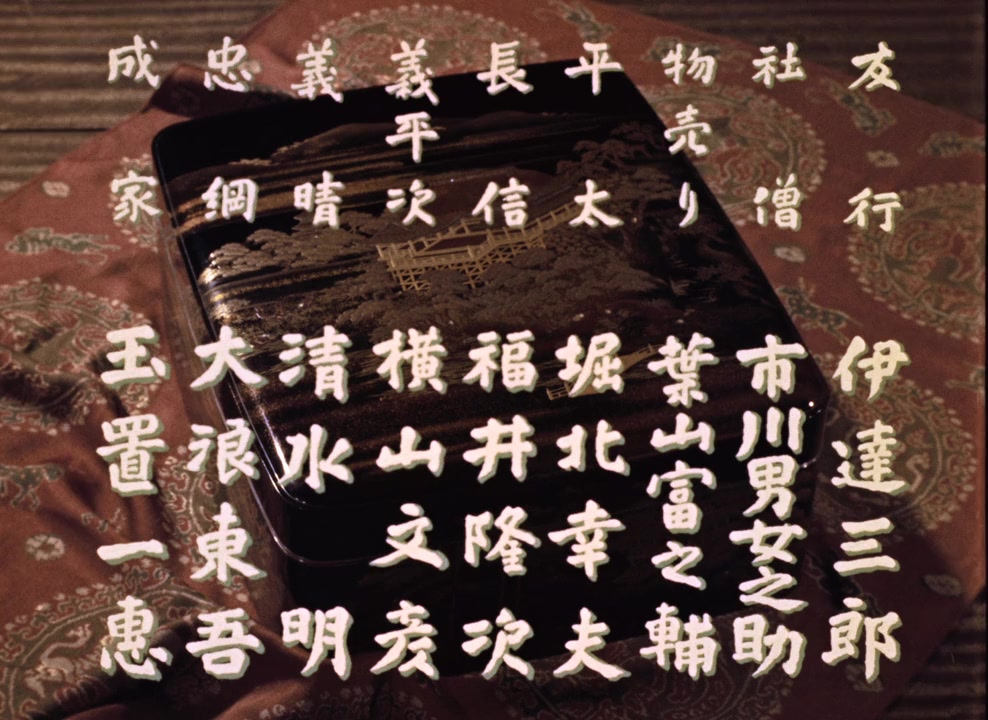 友行 伊達三郎
社僧 市川男女之助
物売り 葉山富之輔
平太 堀北幸夫
長信 福井隆次
義平次 横山文彦
義晴 清水明
忠綱 大浪東吾
成家 玉置一恵